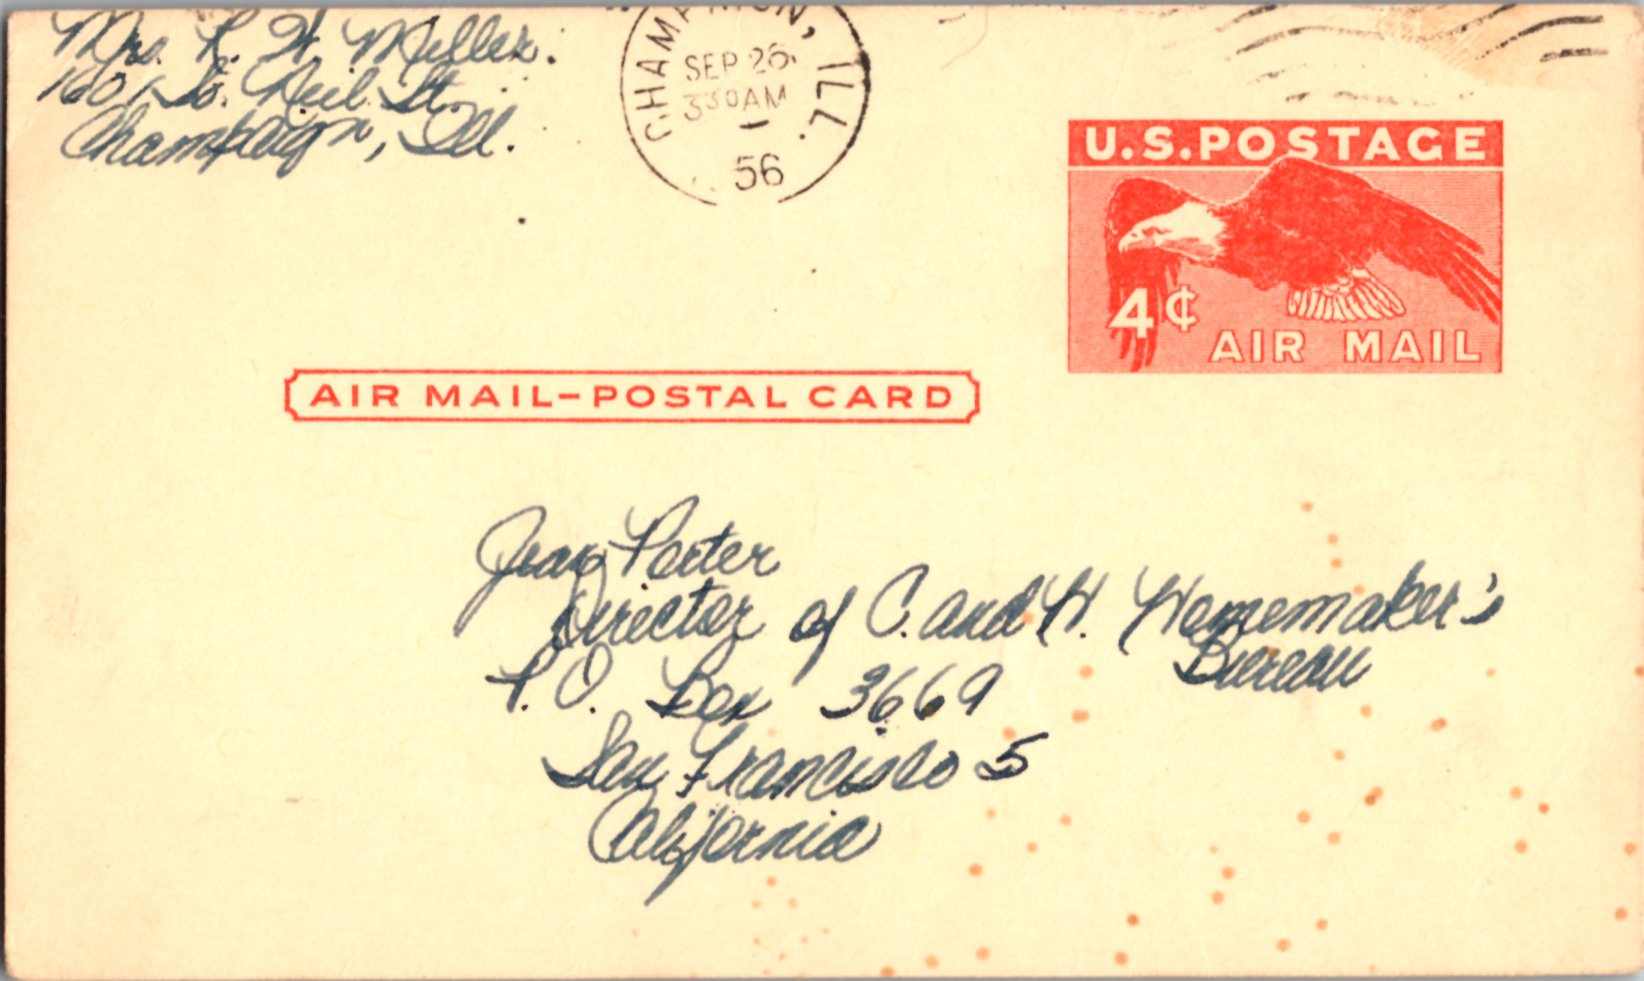 Mrs. R. W. Miller.
1601 So. Neil St.
Champaign, Ill.
CHAMPAIGN, ILL.
SEP 26
330AM
1
56
U.S. POSTAGE
4¢
AIR MAIL
AIR MAIL-POSTAL CARD
Jean Porter
Director of C. and H. Homemaker's
Bureau
P.O. Box 3669
San Francisco 5
California